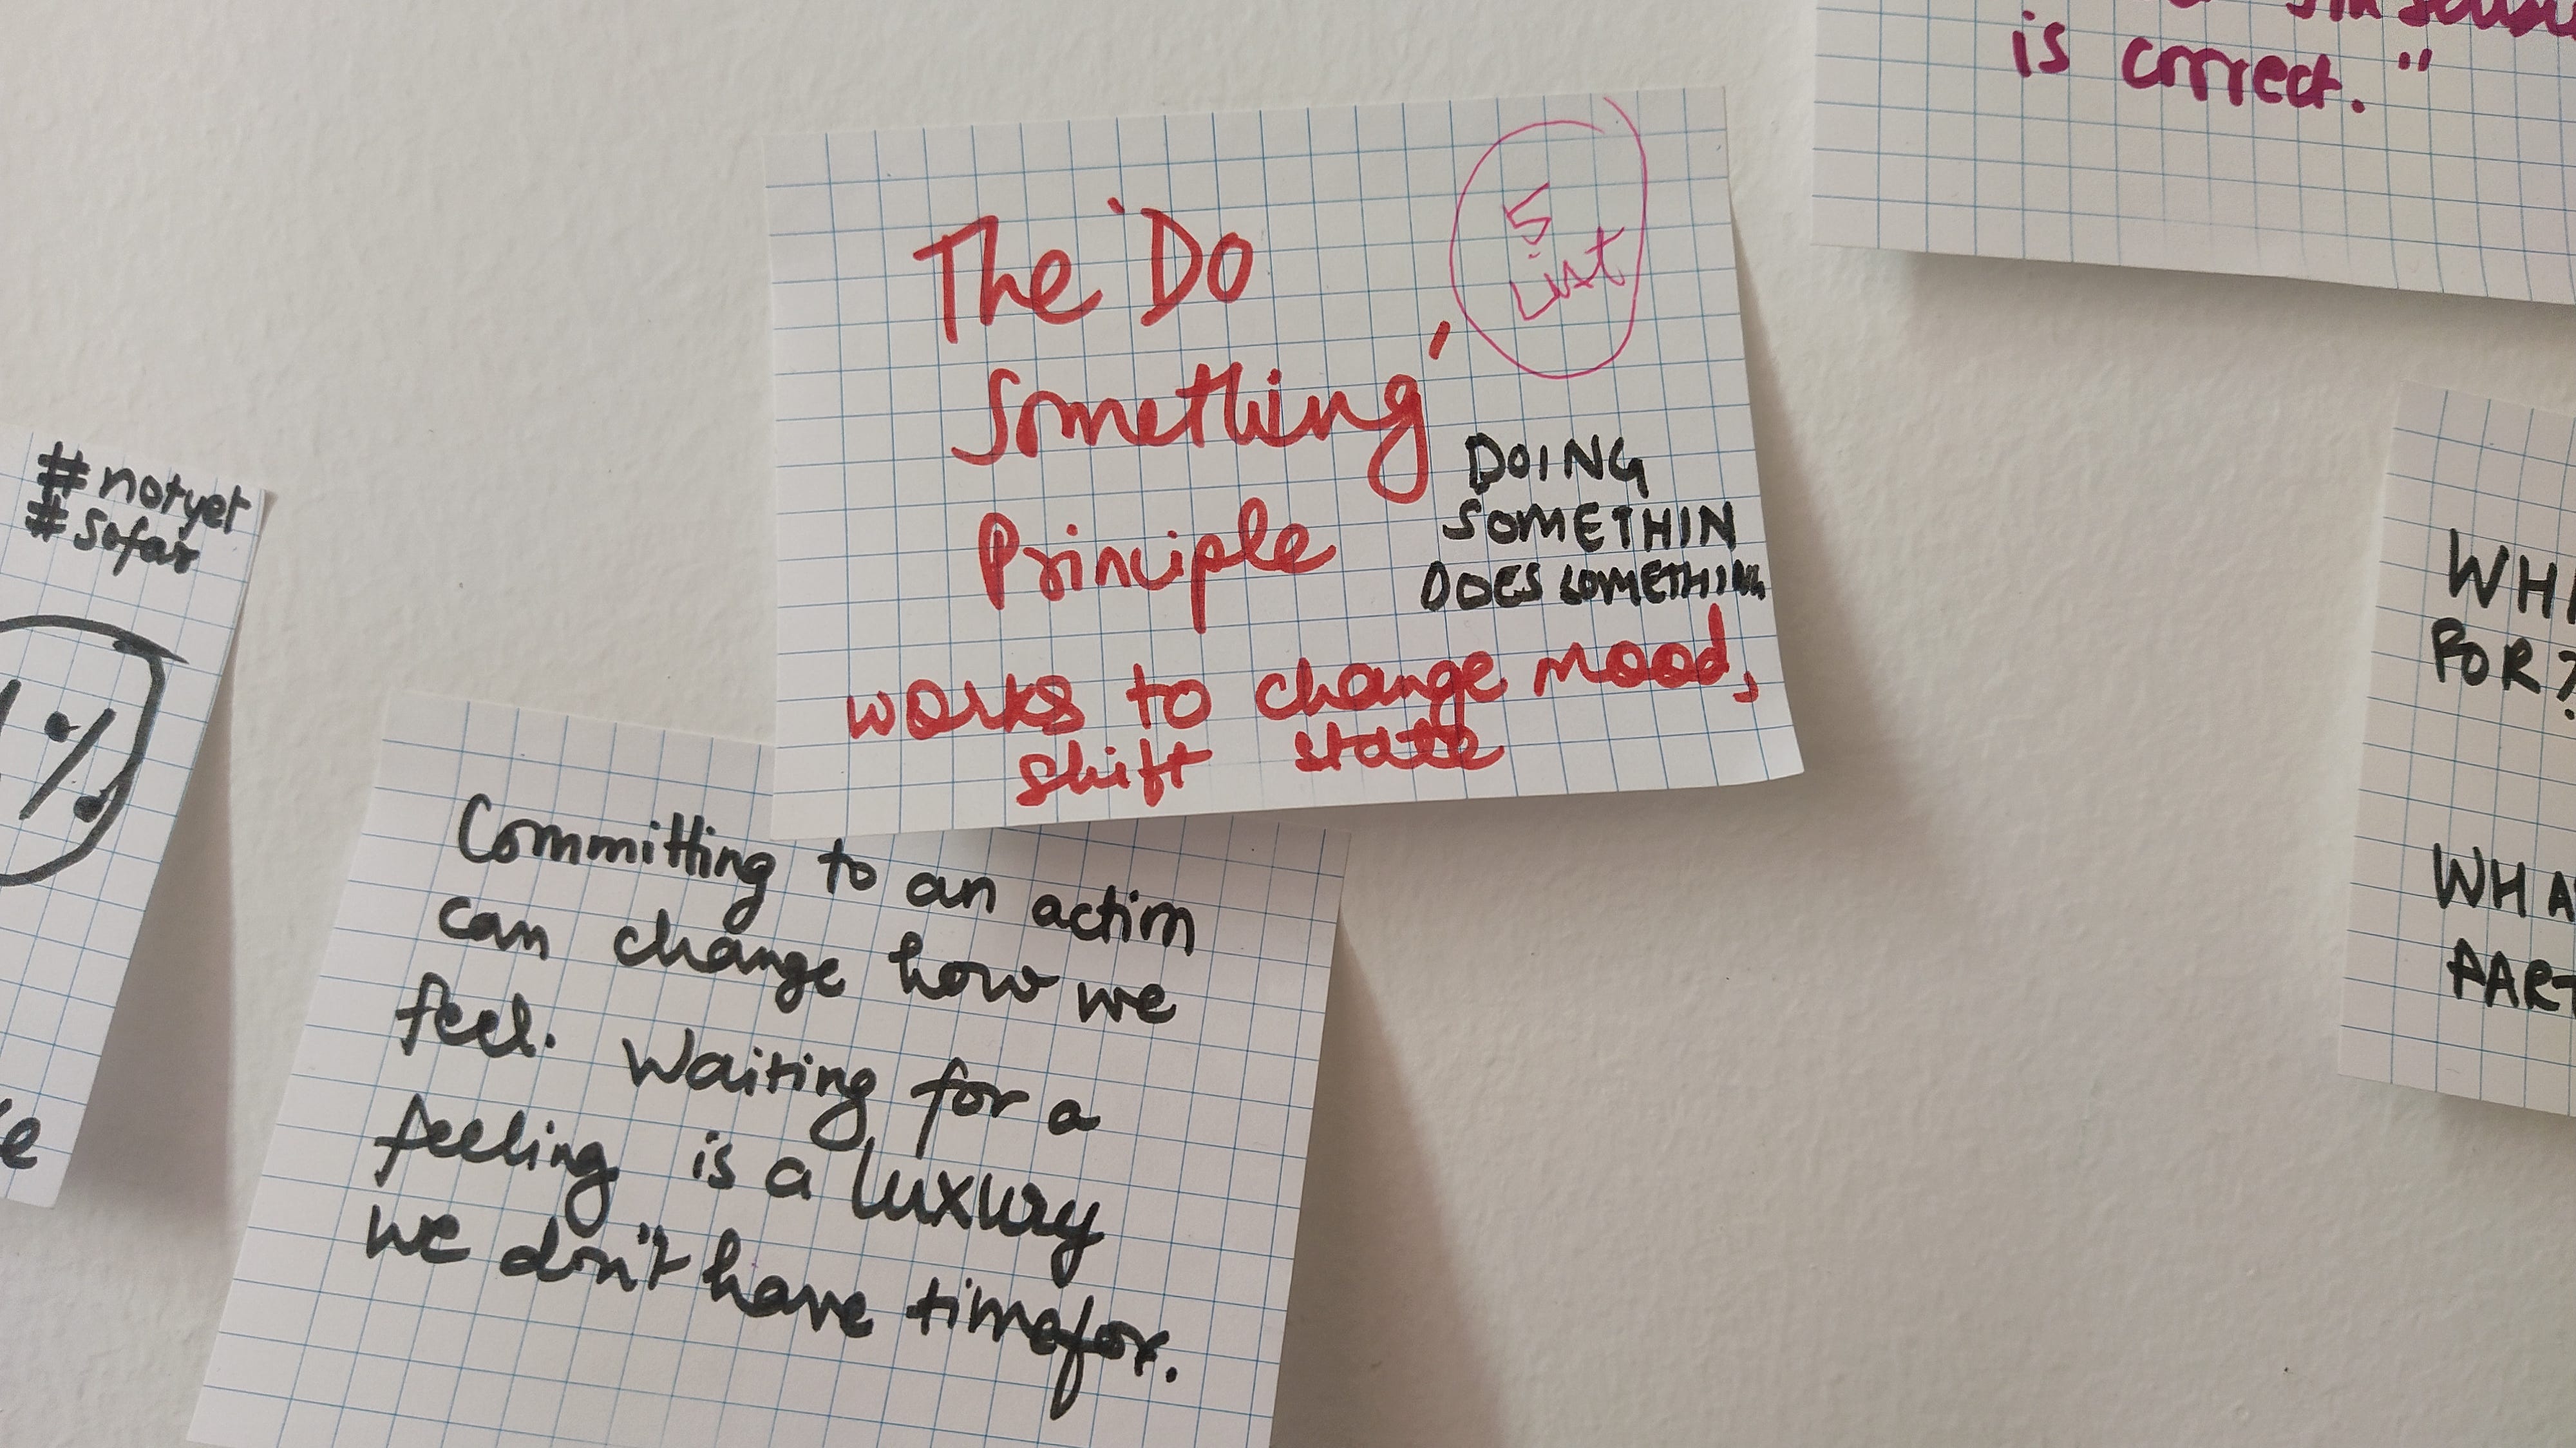 is correct."
5
List
The 'Do
Something'
Principle
DOING
SOMETHIN
DOES SOMETHING
works to change mood,
shift state
#notyet
#sofar
1%
Committing to an action
can change how we
feel. Waiting for a
feeling is a luxury
we don't have time for.
FOR?